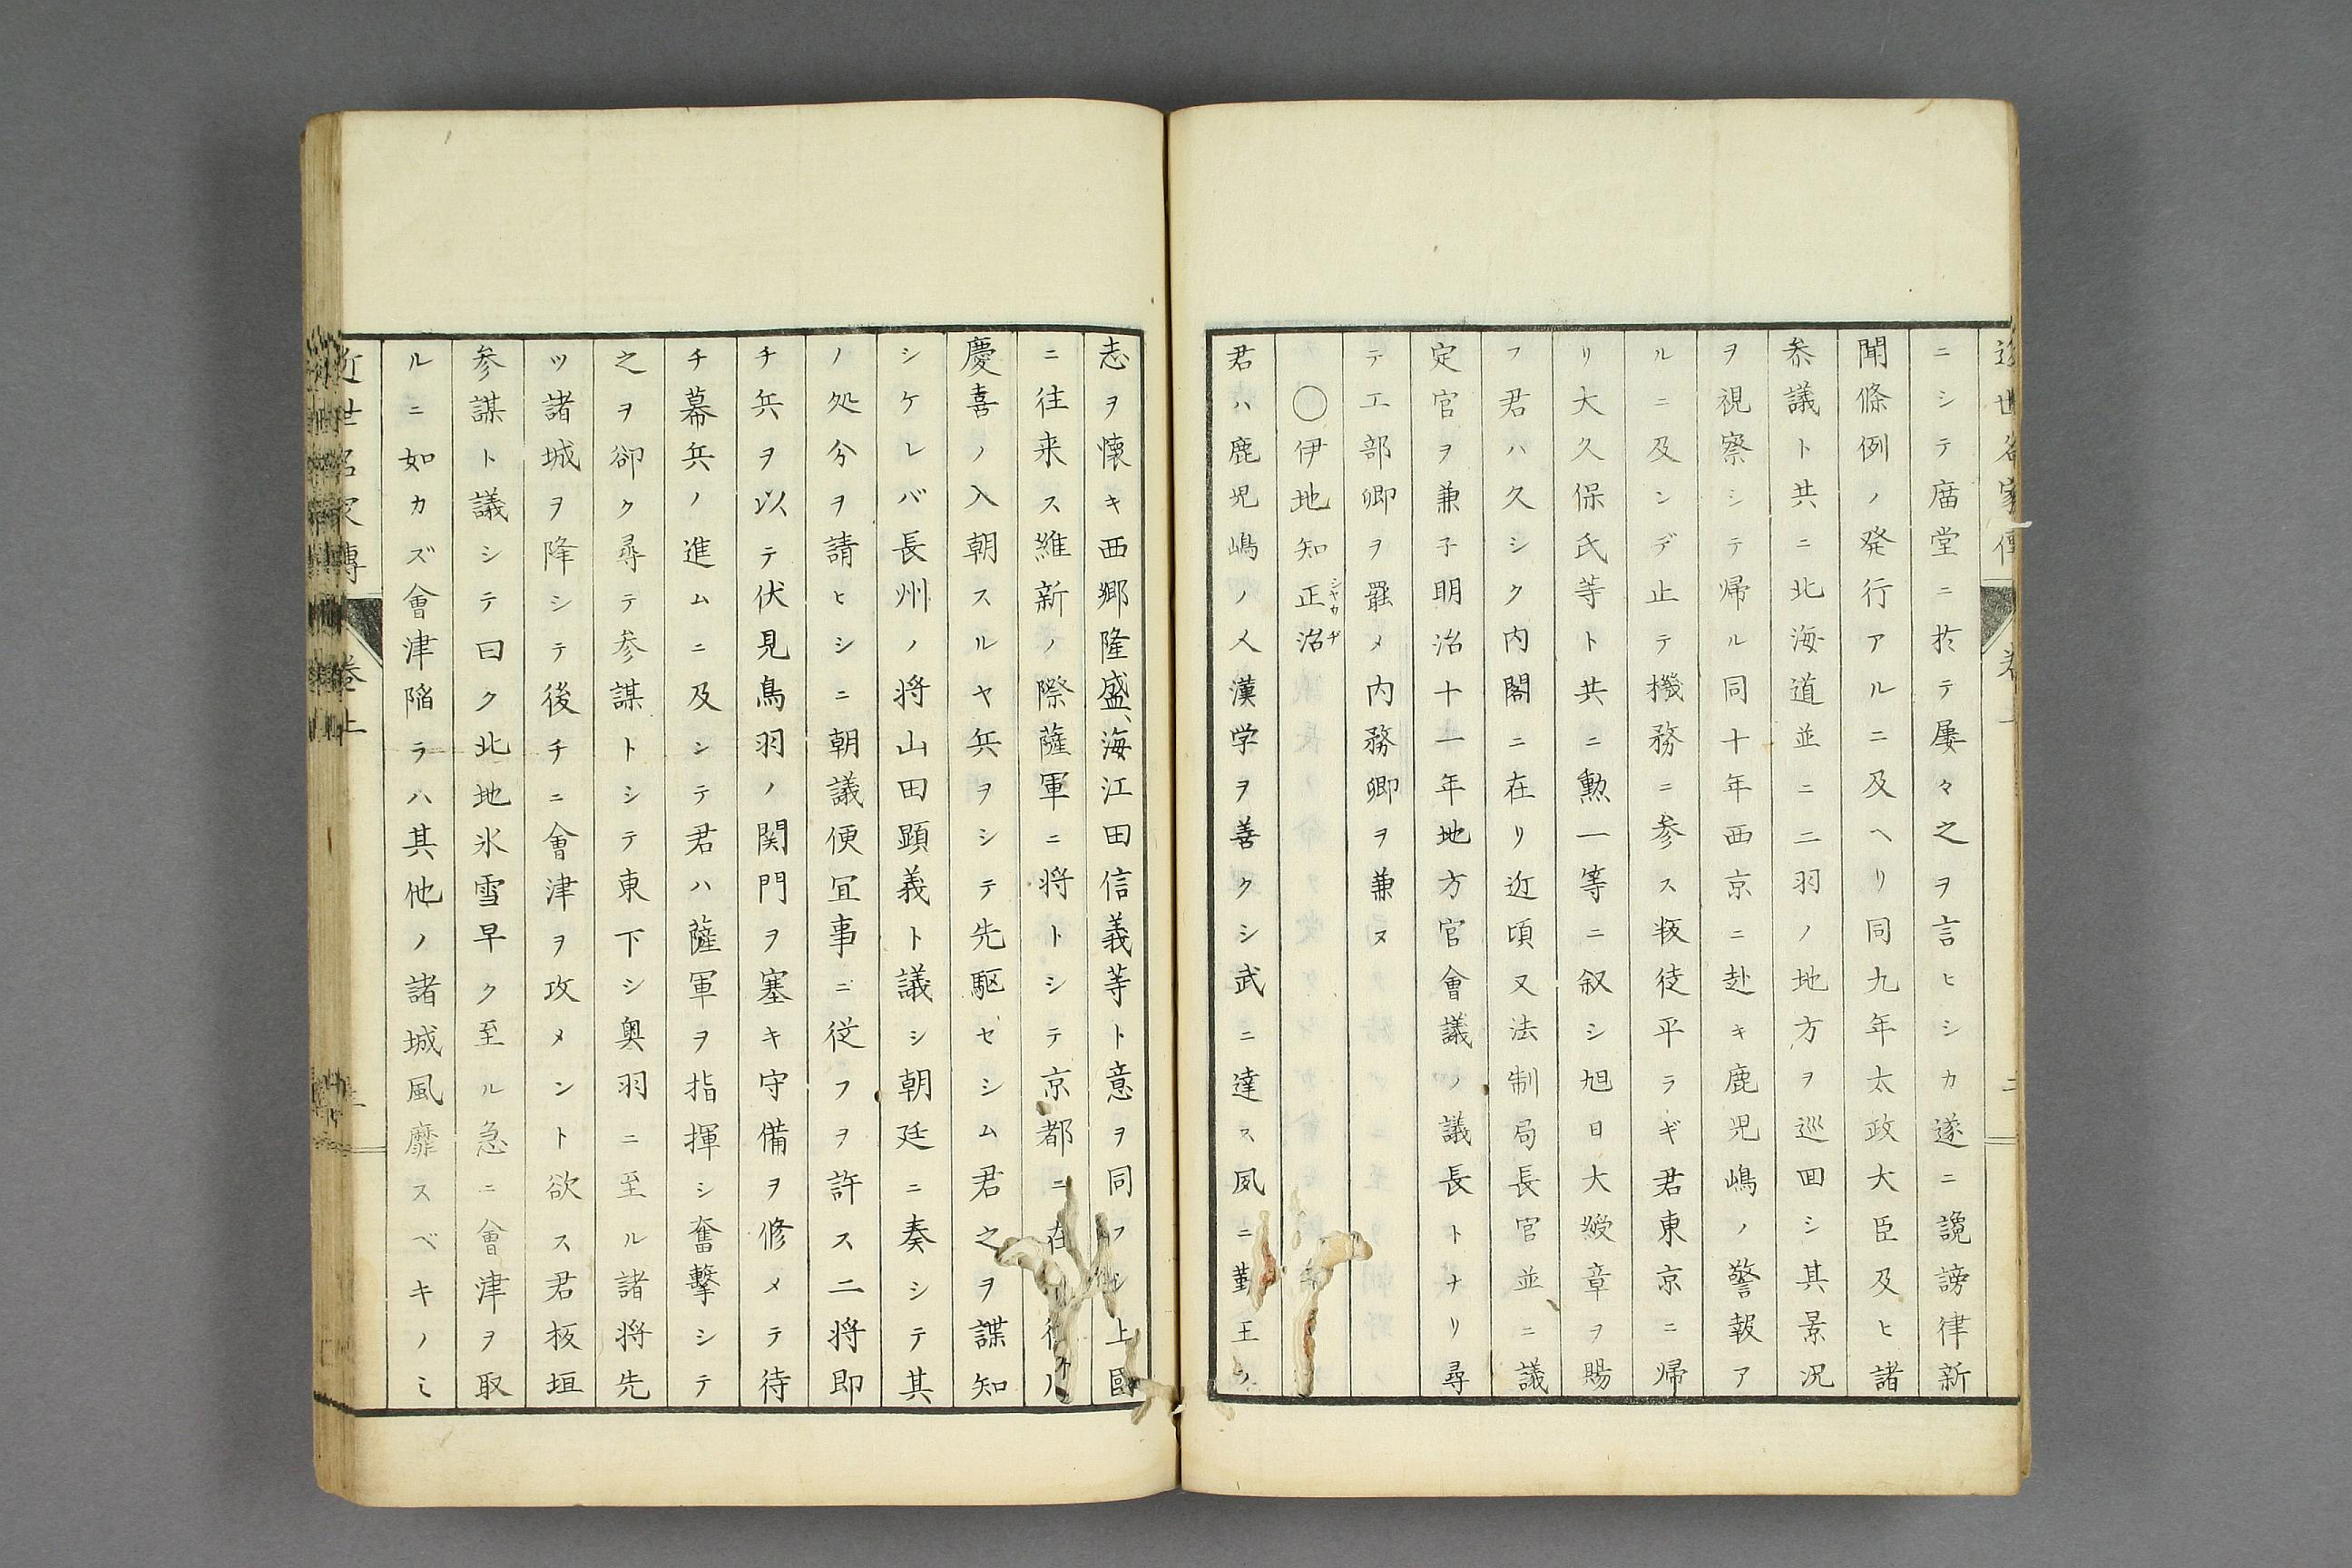 ニシテ廟堂ニ於テ屡々之ヲ言ヒシカ遂ニ讒謗律新
聞條例ノ発行アルニ及ヘリ同九年太政大臣及ヒ諸
叅議ト共ニ北海道並ニ二羽ノ地方ヲ巡回シ其景况
ヲ視察シテ帰ル同十年西京ニ赴キ鹿児嶋ノ警報ア
ルニ及ンデ止テ機務ニ参ス叛徒平ラギ君東京ニ帰
リ大久保氏等ト共ニ勲一等ニ叙シ旭日大綬章ヲ賜
フ君ハ久シク内閣ニ在リ近頃又法制局長官並ニ議
定官ヲ兼子明治十一年地方官會議ノ議長トナリ尋
テ工部卿ヲ罷メ内務卿ヲ兼ヌ
〇伊地知正治
君ハ鹿児嶋ノ人漢学ヲ善クシ武ニ達ス夙ニ勤王ノ
志ヲ懐キ西郷隆盛、海江田信義等ト意ヲ同フシ上國
ニ往来ス維新ノ際薩軍ニ将トシテ京都ニ在
慶喜ノ入朝スルヤ兵ヲシテ先駆セシム君之ヲ諜知
シケレバ長州ノ将山田顕義ト議シ朝廷ニ奏シテ其
ノ処分ヲ請ヒシニ朝議便冝事ニ従フヲ許ス二将即
チ兵ヲ以テ伏見鳥羽ノ関門ヲ塞キ守備ヲ修メテ待
チ幕兵ノ進ムニ及シテ君ハ薩軍ヲ指揮シ奮撃シテ
之ヲ卻ク尋テ参謀トシテ東下シ奥羽ニ至ル諸将先
ツ諸城ヲ降シテ後チニ會津ヲ攻メント欲ス君板垣
参謀ト議シテ曰ク北地氷雪早ク至ル急ニ會津ヲ取
ルニ如カズ會津陥ラハ其他ノ諸城風靡スベキノミ
近世名家傳 巻上